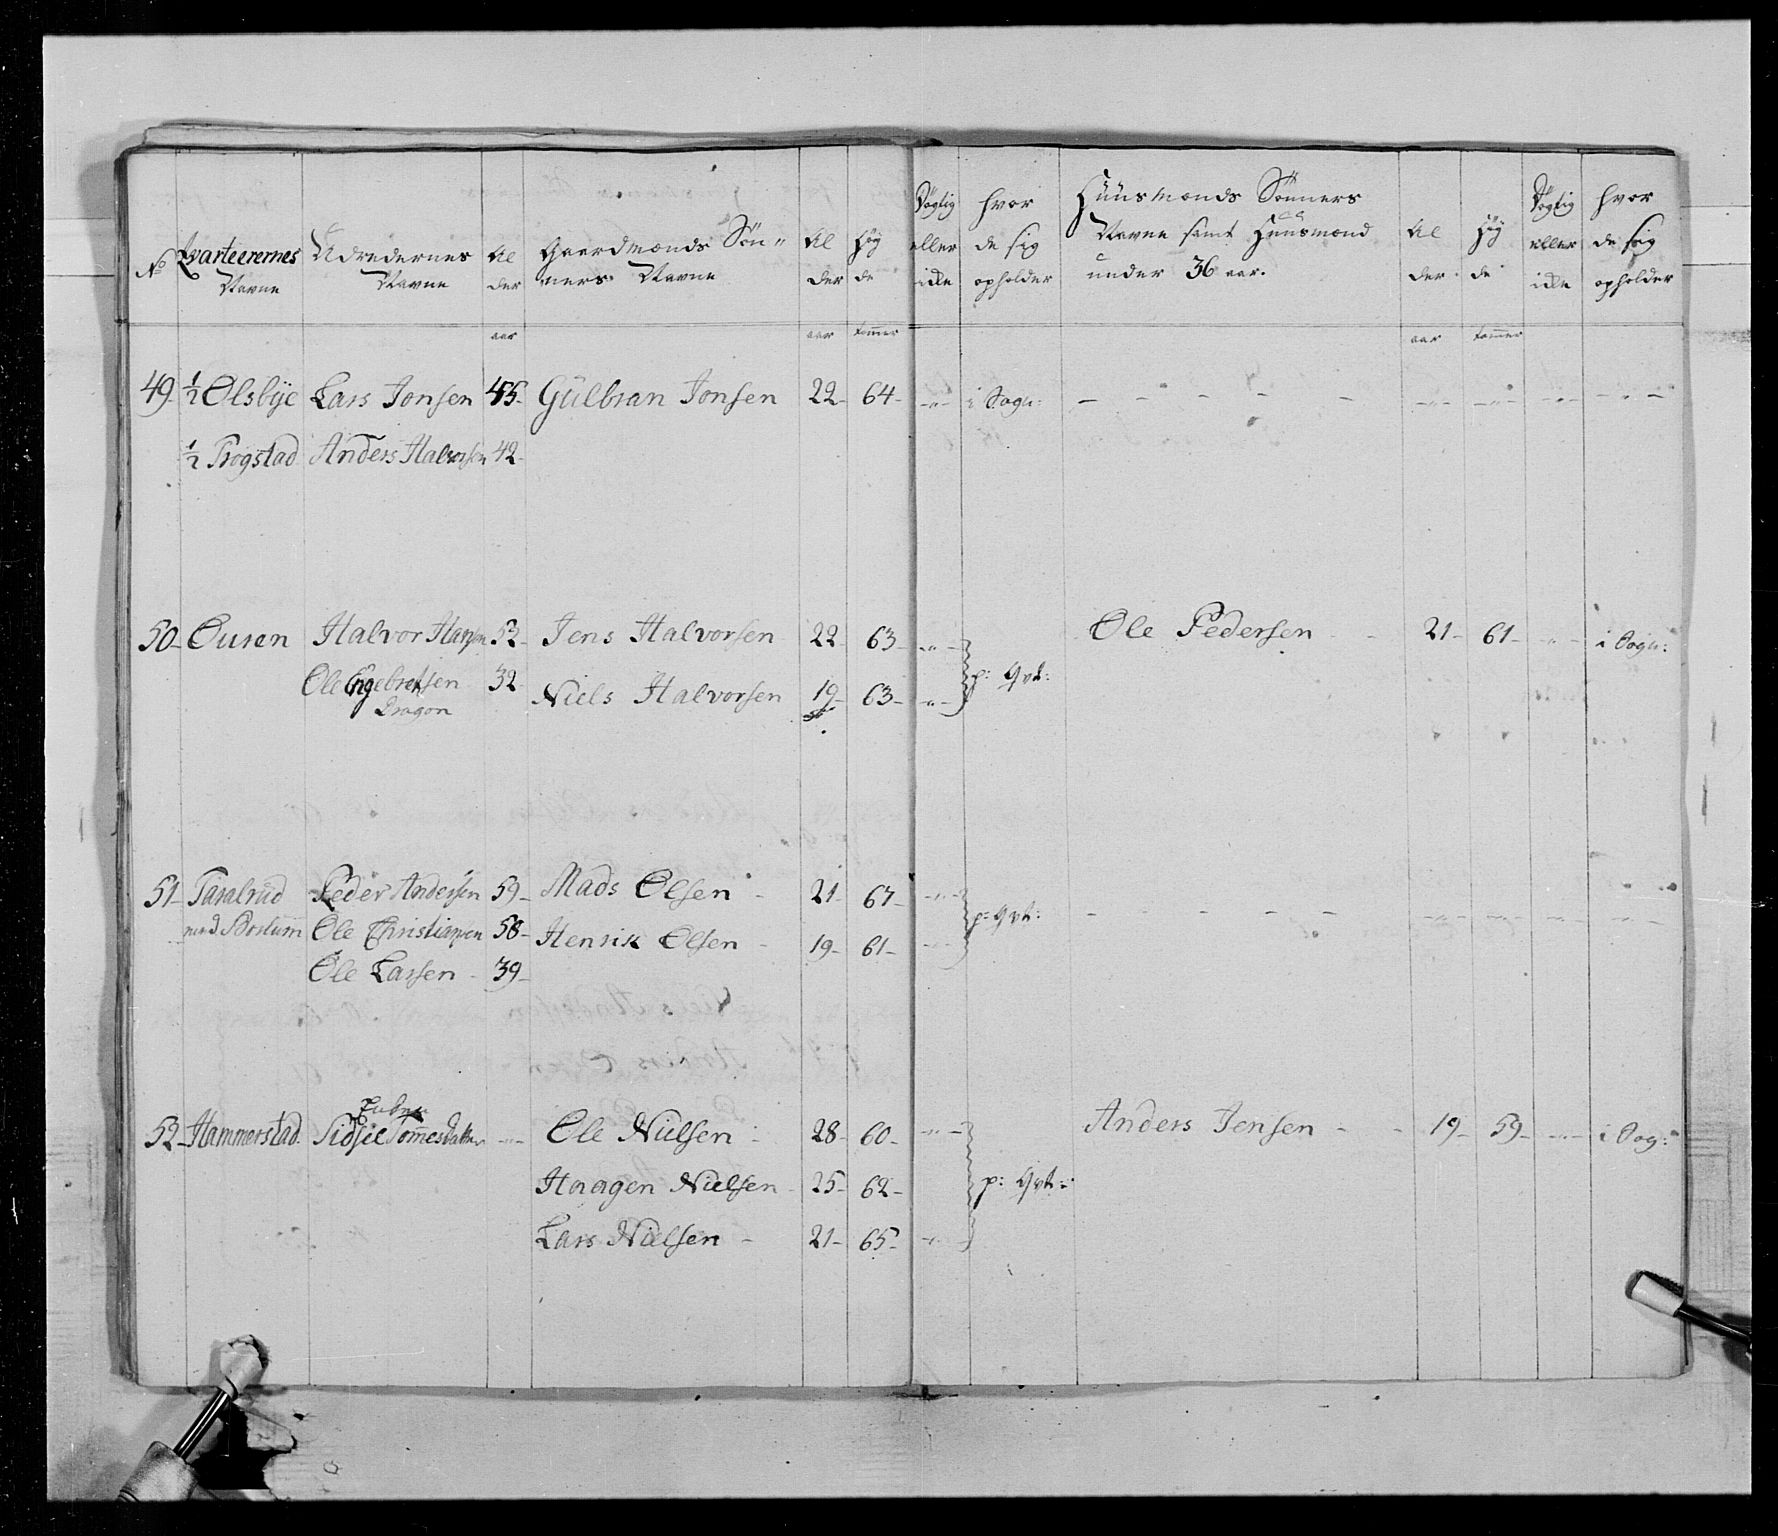 No Qvarteerernes Navne | Udredernes Navne | Al der | Gaardmænds Søn„ ners Navne | Al der | Høy de | Døgtig eller ikke | hvor de sig opholder | Huusmænds Sønners Navne samt Huusmænd under 36 aar. | Al der | Høy de | Døgtig eller ikke | hvor de sig opholder
aar | aar | tommer | aar | tommer
49 ½ Ølsbÿe Lars Jonsen 45 Gülbran Jonsen 22 64 -„- i Sogn: - - - - - -„- -„- -„- -„-
½ Trøgstad Anders Halvorsen 42
50 Ousen Halvor Hansen 52 Jens Halvorsen 22 63 -„- Ole Pedersen 21 61 -„- i Sogn:
Ole Engebretsen 32 Niels Halvorsen 19 63 -„- p: Qvt:
Dragon
51 Taralrud Peder Andersen 59 Mads Olsen 21 67 -„- p: Qvt: - - - - - -„- -„- -„- -„-
med Ole Christiansen 58 Henrik Olsen 19 61 -„-
Ole Larsen 39
Enken
52 Hammerstad Sidsel Tommesdatter -„- Ole Nielsen 28 60 -„- Anders Jensen 19 59 -„- i Sog:
Haagen Nielsen 25 62 p: Qvt:
Lars Nielsen 21 65 -„-